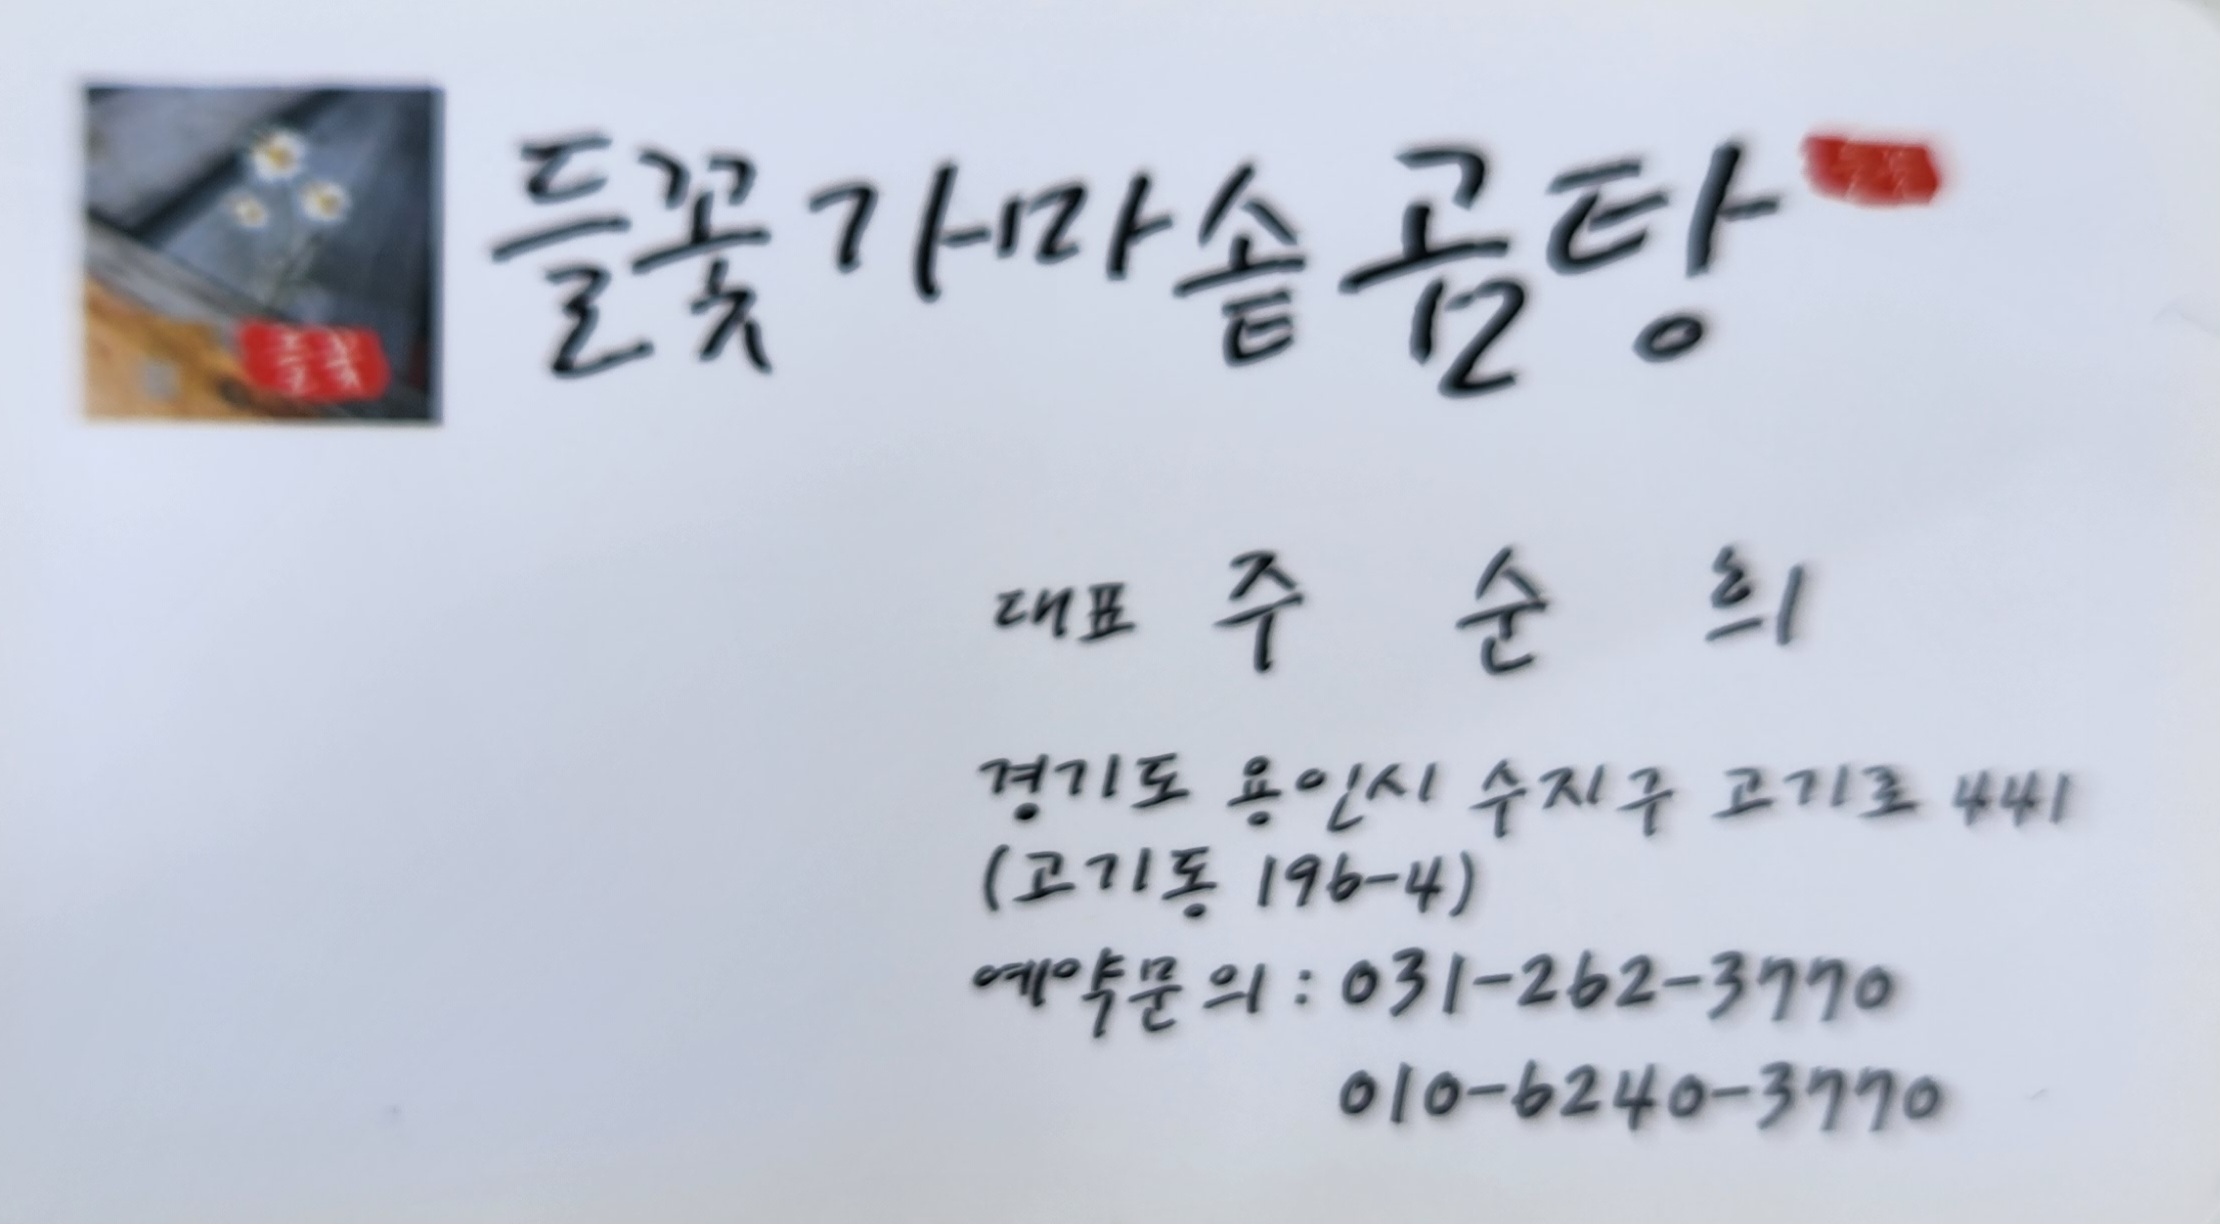 들꽃가마솥곰탕
들꽃
대표 주 순 희
경기도 용인시 수지구 고기로 441
(고기동 196-4)
예약문의 : 031-262-3770
010-6240-3770